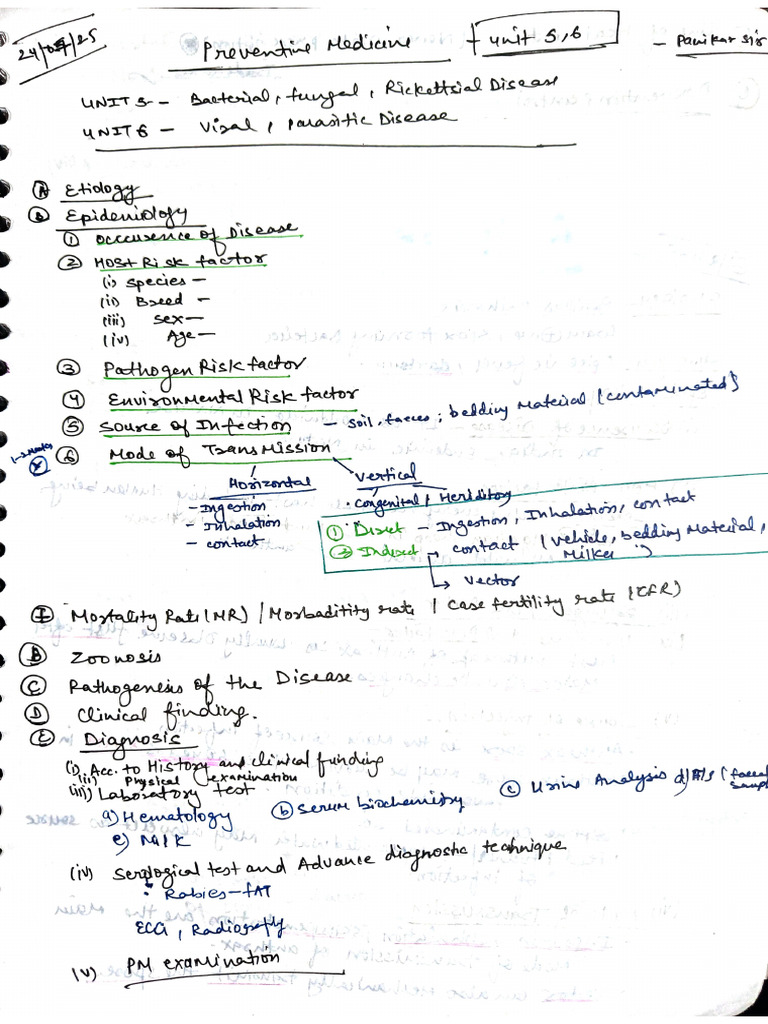 24/05/25
Preventive Medicine + Unit 5,6 - Panikar sir
UNIT 5 - Bacterial, fungal, Rickettsial Disease
UNIT 6 - Viral, Parasitic Disease
(A) Etiology
(B) Epidemiology
(1) Occurence of Disease
(2) Host Risk factor
(i) Species -
(ii) Breed -
(iii) Sex -
(iv) Age -
(3) Pathogen Risk factor
(4) Environmental Risk factor
(5) Source of Infection - Soil, faeces, bedding Material (contaminated)
(6) Mode of Transmission
Horizontal
- Ingestion
- Inhalation
- contact
Vertical
. Congenital / Heriditory
(1) Direct - Ingestion, Inhalation, contact
(2) Indirect → contact (vehicle, bedding Material, Milker)
↳ vector
(7) Mortality Rate (MR) / Morbaditity rate / Case fertility rate (CFR)
(B) Zoonosis
(C) Pathogenesis of the Disease
(D) Clinical finding.
(E) Diagnosis
(i) Acc. to History and clinical funding
(ii) Physical examination
(iii) Laboratory test
a) Hematology (b) Serum biochemistry (c) Urine Analysis d) (faecal sample
e) Milk
(iv) Serological test and Advance diagnostic technique
: Rabies - FAT
ECG, Radiografly
(v) PM examination